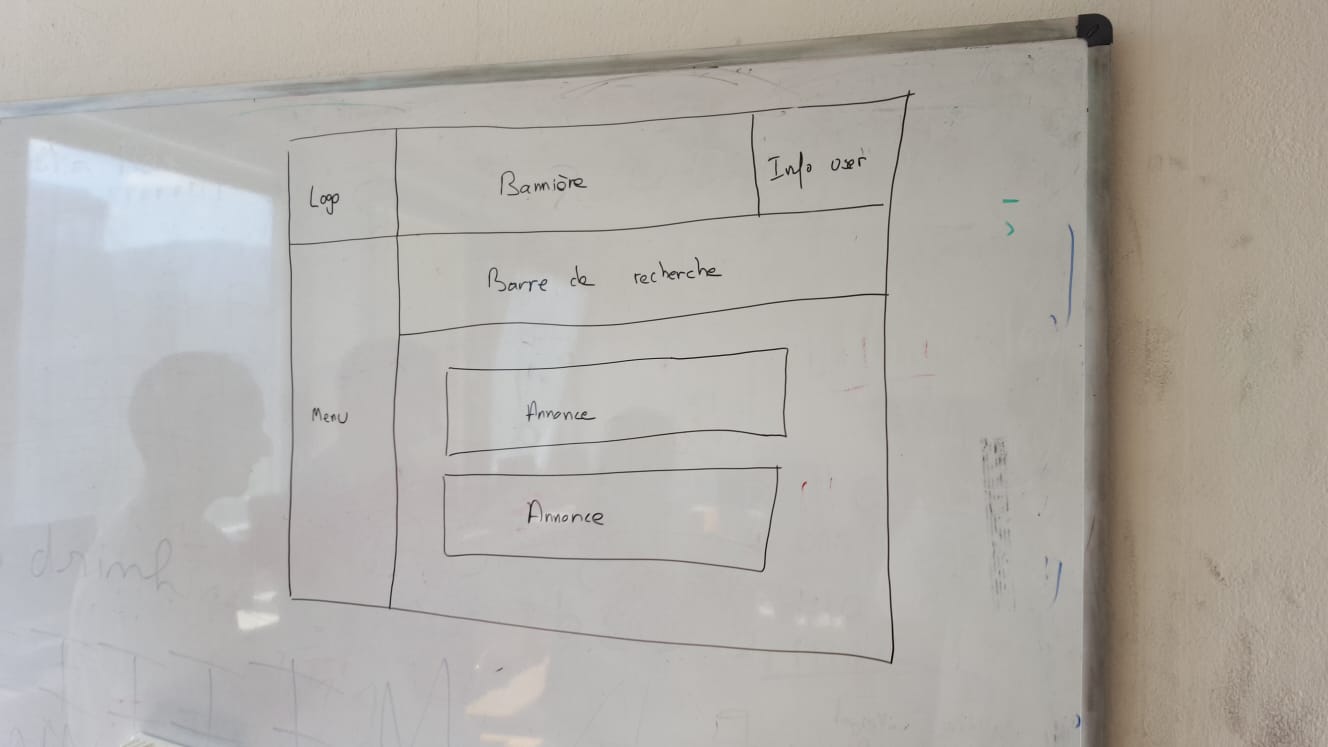 Logo
Bannière
Info user
Barre de recherche
Menu
Annonce
Annonce
drink